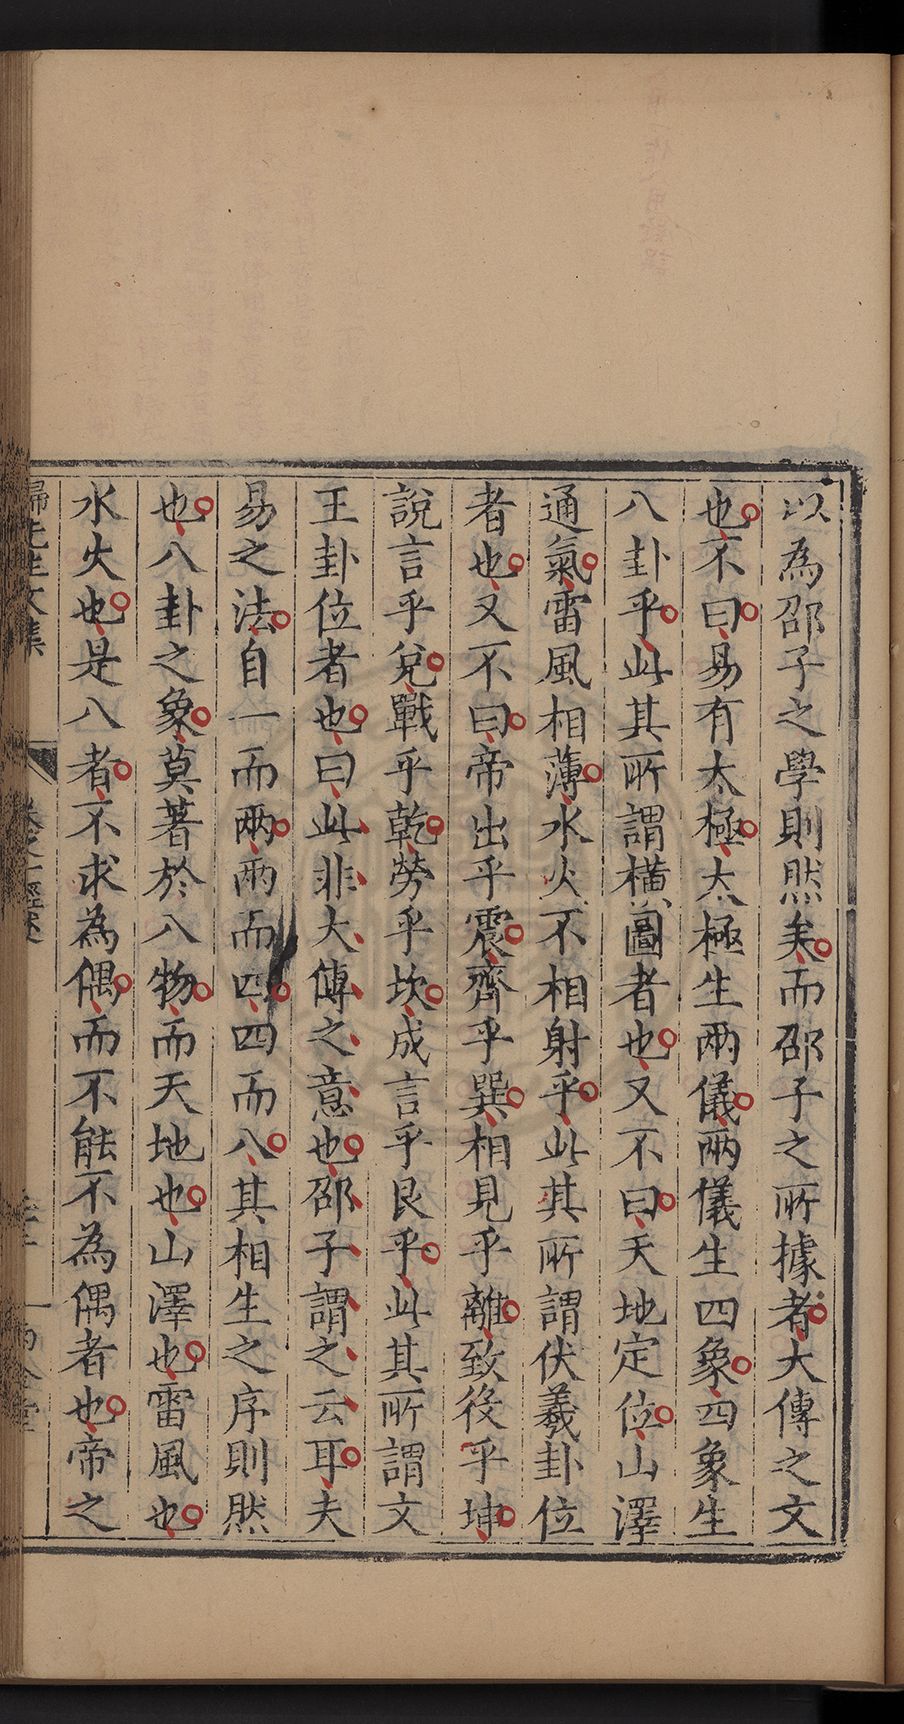 以為邵子之學則然矣而邵子之所據者大傳之文
也不曰易有太極太極生兩儀兩儀生四象四象生
八卦乎此其所謂橫圖者也又不曰天地定位山澤
通氣雷風相薄水火不相射乎此其所謂伏羲卦位
者也又不曰帝出乎震齊乎巽相見乎離致役乎坤
說言乎兌戰乎乾勞乎坎成言乎艮乎此其所謂文
王卦位者也曰此非大傳之意也邵子謂之云耳夫
易之法自一而兩兩而四四而八其相生之序則然
也八卦之象莫著於八物而天地也山澤也雷風也
水火也是八者不求為偶而不能不為偶者也帝之
歸先生文集
卷之一經述